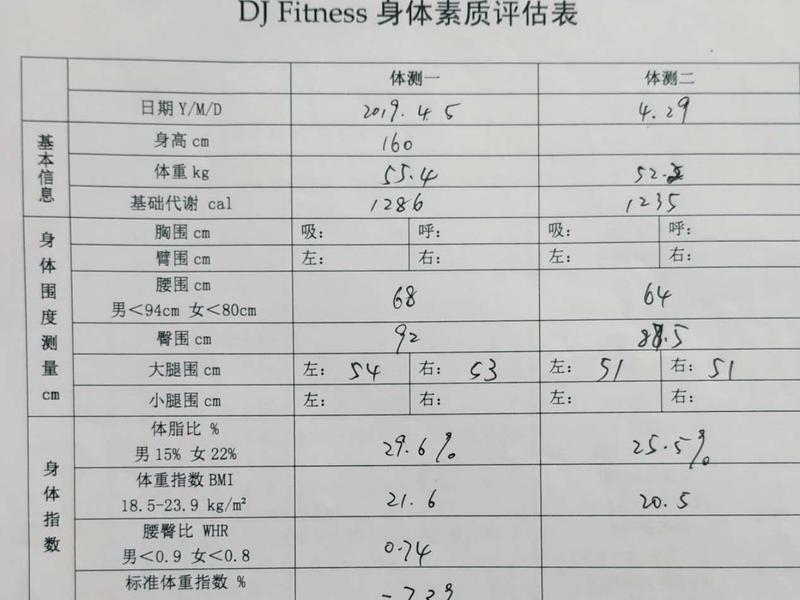 DJ Fitness 身体素质评估表
体测一 体测二
日期 Y/M/D 2019.4.5 4.29
基本信息
身高 cm 160
体重 kg 55.4
基础代谢 cal 1286 1235
身体围度测量 cm
胸围 cm 吸: 呼: 吸: 呼:
臂围 cm 左: 右: 左: 右:
腰围 cm
男<94cm 女<80cm 68 64
臀围 cm 92
大腿围 cm 左: 54 右: 53 左: 51 右: 51
小腿围 cm 左: 右: 左: 右:
身体指数
体脂比 %
男 15% 女 22% 29.6% 25.5%
体重指数 BMI
18.5-23.9 kg/m² 21.6 20.5
腰臀比 WHR
男<0.9 女<0.8 0.74
标准体重指数 %